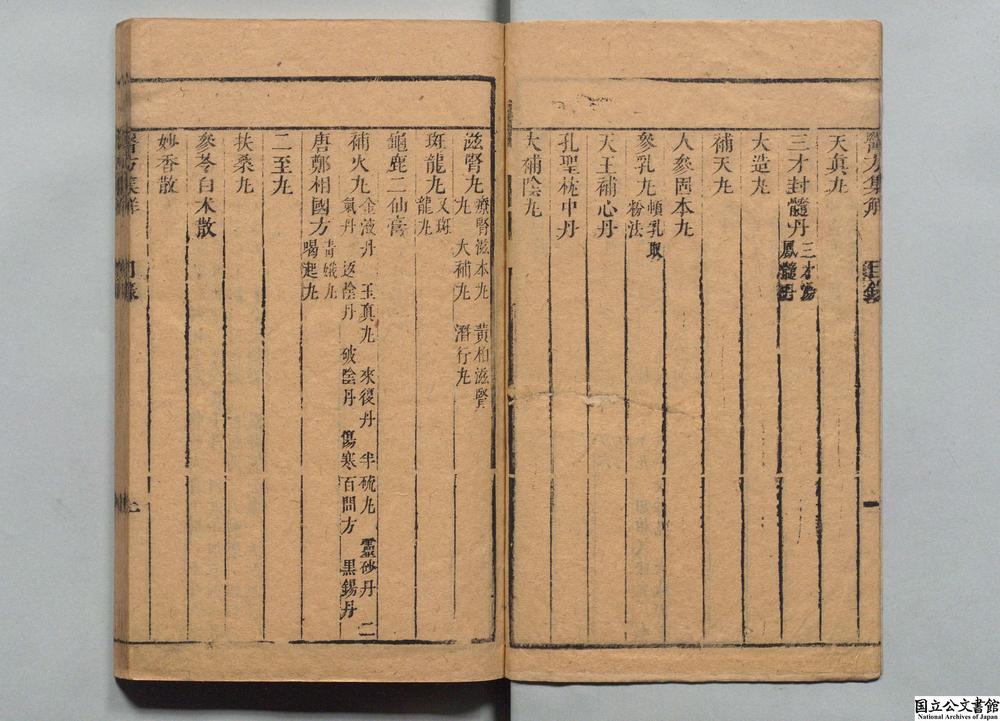 醫方集解 目錄 一
天真丸
三才封髓丹 三才湯
鳳髓丹
大造丸
補天丸
人參固本丸
參乳丸 頓乳取
粉法
天王補心丹
孔聖枕中丹
大補陰丸
滋腎丸 療腎滋本丸 黃柏滋腎
丸 大補丸 潛行丸
斑龍丸 又斑
龍丸
龜鹿二仙膏
補火丸 金液丹 玉真丸 來復丹 半硫丸 靈砂丹 二
氣丹 返陰丹 破陰丹 傷寒百問方 黑錫丹
唐鄭相國方 青娥丸
喝起丸
二至丸
扶桑丸
參苓白朮散
妙香散
醫方集解 目錄 上
国立公文書館
National Archives of Japan